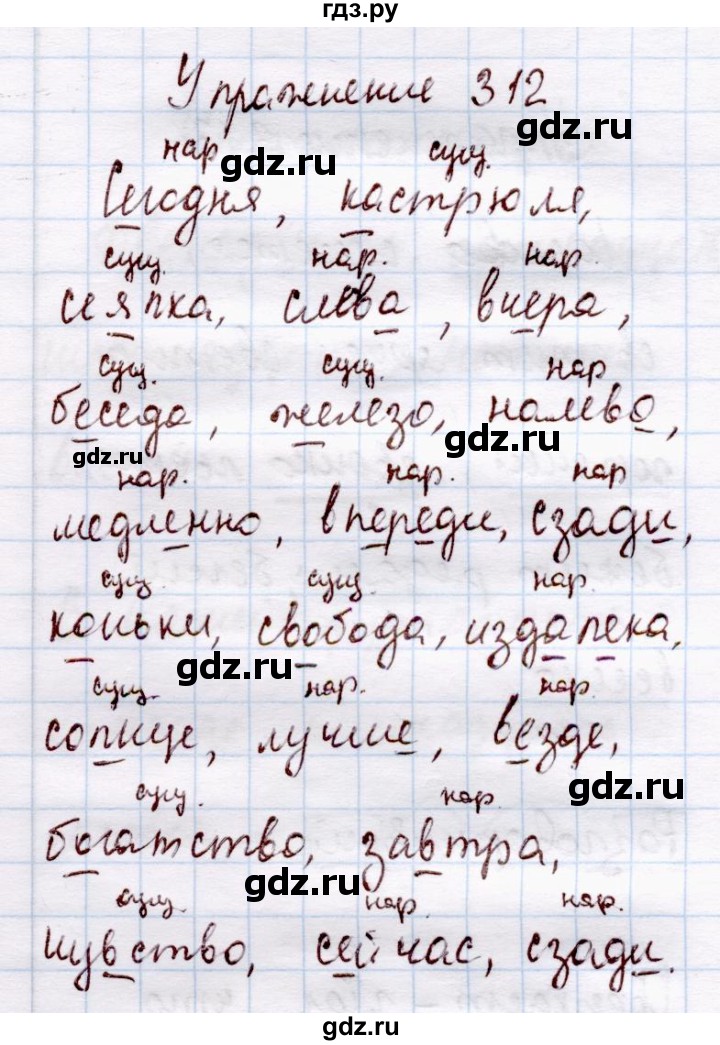 гдз.ру
Упражнение 312
нар сущ.
gdz.ru gdz.ru
Сегодня, кастрюля,
сущ. нар. нар.
сеяпка, слева, вчера,
сущ. сущ. нар
беседа, железо, налево,
gdz.ru gdz.ru
нар. нар. нар
медленно, впереди, сзади,
сущ. сущ. нар.
коньки, свобода, издалека,
gdz.ru gdz.ru
сущ. нар. нар.
солнце, лучше, везде,
gdz.ru
сущ. нар.
богатство, завтра,
gdz.ru
сущ. нар. нар.
чувство, сейчас, сзади.
gdz.ru
gdz.ru